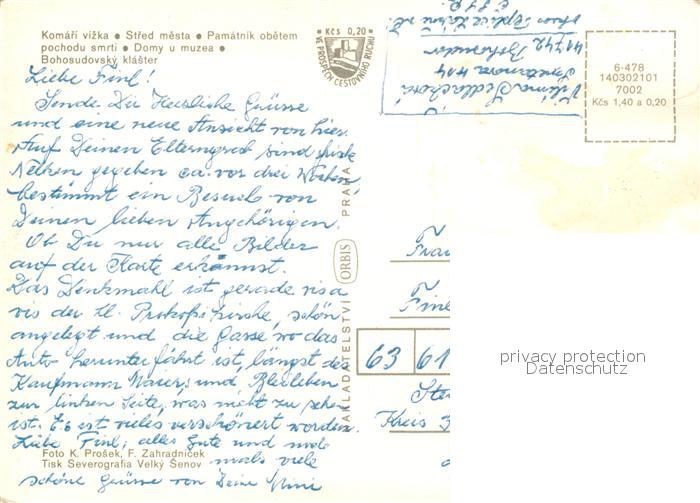 Komáří vížka ● Střed města ● Památník obětem
pochodu smrti ● Domy u muzea ●
Bohosudovský klášter
Kčs 0,20
VE PROSPĚCH CESTOVNÍHO RUCHU
Liebe Finl!
Sende Dir Herzliche Grüsse
und eine neue Ansicht von hier.
Auf Deinen Elterngrab sind frische
Nelken gegeben ca. vor drei Wochen,
bestimmt ein Besuch von
Deinen lieben Angehörigen.
Ob Du nur alle Bilder
auf der Karte erkännst.
Das Denkmahl ist gerade vis a
vis der hl. Prokopikirche, schön
angelegt und die Gasse wo das
Auto herunterfährt ist, längst des
Kaufmann Maier, und
zur linken Seite, was nicht zu sehen
ist. Es ist vieles verschönert worden.
Liebe Finl, alles Gute und noch
mals viele
schöne Grüsse von Deine Mini
Foto K. Prošek, F. Zahradníček
Tisk Severografia Velký Šenov
NAKLADATELSTVÍ ORBIS PRAHA
Vilma Sedlačková
414
41742
6-478
140302101
7002
Kčs 1,40 a 0,20
Frau
Finl
63 61
Ste
Kreis
privacy protection
Datenschutz